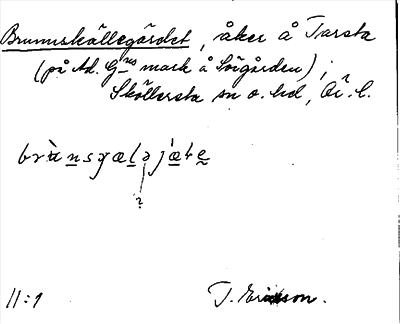 Brunnskällegärdet, åker å Tarsta
(på Ad. G:ns mark å Sörgården);
Sköllersta sn o. hd, Ör. l.
?
11:1
T. Ericsson.